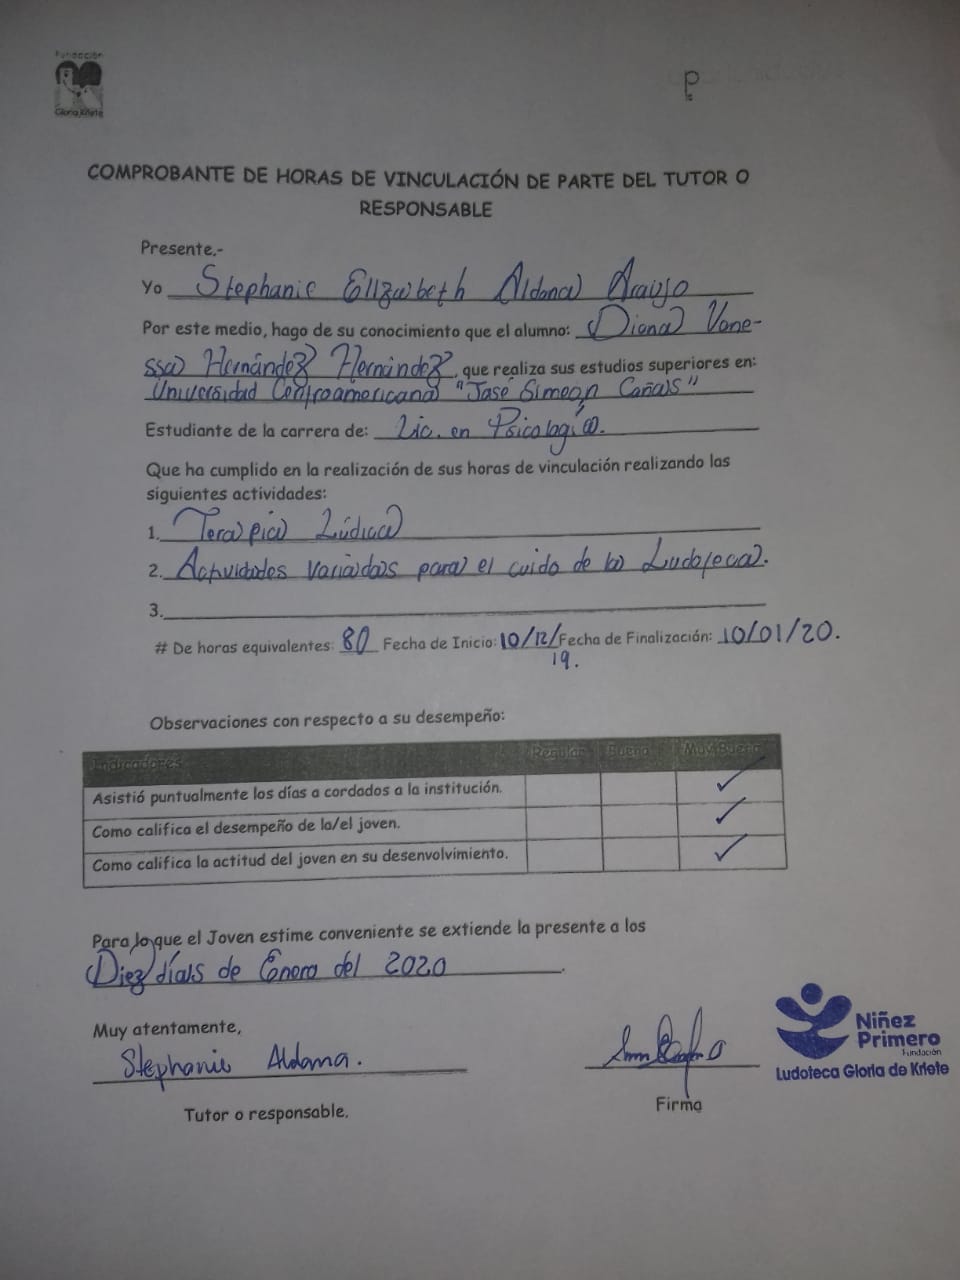 Fundación
Gloria Kriete
COMPROBANTE DE HORAS DE VINCULACIÓN DE PARTE DEL TUTOR O
RESPONSABLE
Presente.-
Yo Stephanie Elizabeth Aldana Araujo
Por este medio, hago de su conocimiento que el alumno: Diana Vane-
ssa Hernández Hernández, que realiza sus estudios superiores en:
Universidad Centroamericana "José Simeón Cañas"
Estudiante de la carrera de: Lic. en Psicología.
Que ha cumplido en la realización de sus horas de vinculación realizando las
siguientes actividades:
1. Terapia Lúdica
2. Actividades variadas para el cuido de la Ludoteca.
3.
# De horas equivalentes: 80 Fecha de Inicio: 10/12/ Fecha de Finalización: 10/01/20.
19.
Observaciones con respecto a su desempeño:
Indicadores Regular Bueno Muy Bueno
Asistió puntualmente los días a cordados a la institución. ✓
Como califica el desempeño de la/el joven. ✓
Como califica la actitud del joven en su desenvolvimiento. ✓
Para lo que el Joven estime conveniente se extiende la presente a los
Diez días de Enero del 2020.
Muy atentamente,
Stephanie Aldana.
Tutor o responsable.
Firma
Niñez
Primero
Fundación
Ludoteca Gloria de Kriete